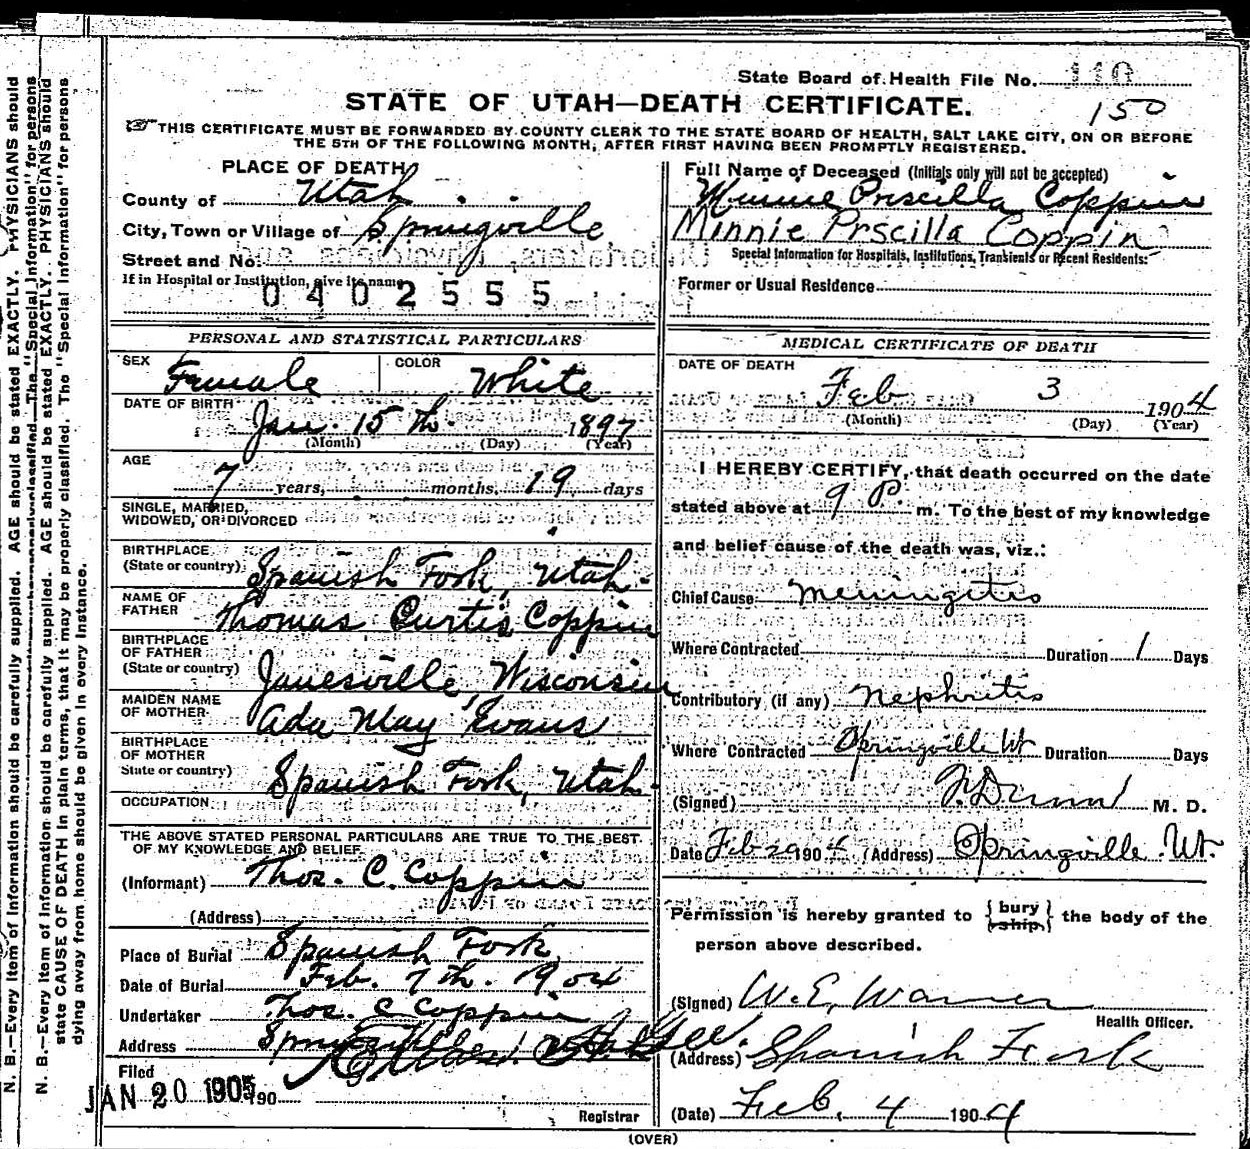 State Board of Health File No. 110
150
STATE OF UTAH—DEATH CERTIFICATE.
THIS CERTIFICATE MUST BE FORWARDED BY COUNTY CLERK TO THE STATE BOARD OF HEALTH, SALT LAKE CITY, ON OR BEFORE
THE 5TH OF THE FOLLOWING MONTH, AFTER FIRST HAVING BEEN PROMPTLY REGISTERED.
PLACE OF DEATH
County of Utah
City, Town or Village of Springville
Street and No.
If in Hospital or Institution, give its name
0402555
Full Name of Deceased (Initials only will not be accepted)
Minnie Priscilla Coppin
Minnie Prscilla Coppin
Special Information for Hospitals, Institutions, Transients or Recent Residents:
Former or Usual Residence
PERSONAL AND STATISTICAL PARTICULARS
SEX Female COLOR White
DATE OF BIRTH Jan. 15 th. 1897
(Month) (Day) (Year)
AGE
7 years, months, 19 days
SINGLE, MARRIED,
WIDOWED, OR DIVORCED
BIRTHPLACE
(State or country) Spanish Fork, Utah.
NAME OF
FATHER Thomas Curtis Coppin
BIRTHPLACE
OF FATHER
(State or country) Janesville, Wisconsin
MAIDEN NAME
OF MOTHER Ada May Evans
BIRTHPLACE
OF MOTHER
State or country) Spanish Fork, Utah.
OCCUPATION
THE ABOVE STATED PERSONAL PARTICULARS ARE TRUE TO THE BEST
OF MY KNOWLEDGE AND BELIEF
(Informant) Thos. C. Coppin
(Address)
Place of Burial Spanish Fork
Date of Burial Feb. 7 th. 1904
Undertaker Thos. C Coppin
Address
Filed
JAN 20 1905 190
Registrar
MEDICAL CERTIFICATE OF DEATH
DATE OF DEATH
Feb 3 1904
(Month) (Day) (Year)
I HEREBY CERTIFY, that death occurred on the date
stated above at 9 P. m. To the best of my knowledge
and belief cause of the death was, viz.:
Chief Cause Meningitis
Where Contracted Duration 1 Days
Contributory (if any) Nephritis
Where Contracted Springville Ut Duration Days
(Signed) M. D.
Date Feb 29 1904 (Address) Springville Ut.
Permission is hereby granted to {bury ship} the body of the
person above described.
(Signed) W. E. Warner
Health Officer.
(Address) Spanish Fork
(Date) Feb. 4 1904
(OVER)
N. B.—Every item of information should be carefully supplied. AGE should be stated EXACTLY. PHYSICIANS should
N. B.—Every item of information should be carefully supplied. AGE should be stated EXACTLY. PHYSICIANS should
state CAUSE OF DEATH in plain terms, that it may be properly classified. The "Special Information" for persons
dying away from home should be given in every instance.